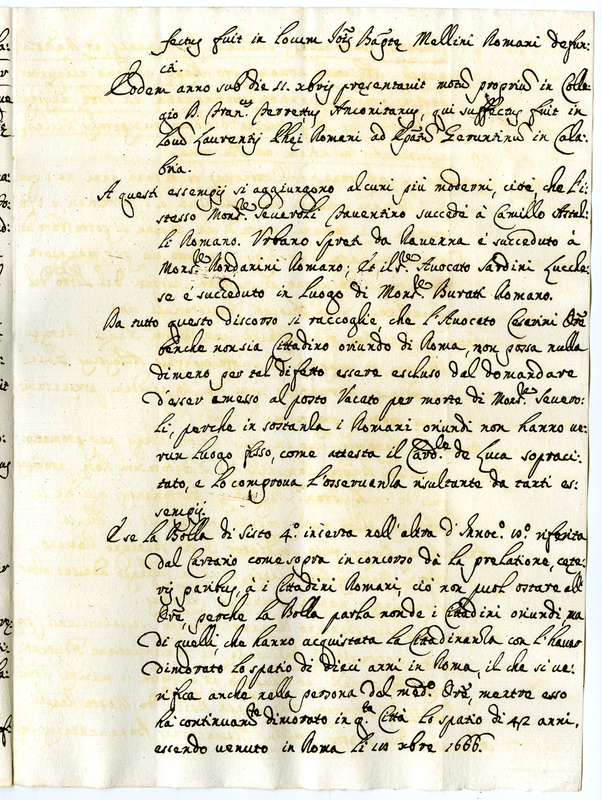 fectus fuit in locum Jois Baptę Mellini Romani defun:
cti.
Eodem anno sub die 11. xbris presentavit motu proprium in Colle:
gio D. Fran.cus Ferrettus Anconitanus, qui suffectus fuit in
locu Laurentij Romani ad in Cala:
bria.
A questi essempij si aggiungono alcuni più moderni, cioè che l'i:
stesso Mons.re Severoli Faventino succedè à Camillo Astal:
li Romano. Urbano Spreti da Ravenna è succeduto à
Mons.re Rondanini Romano; Et il S.re Avocato Sardini Lucche:
se è succeduto in luogo di Mons.re Buratti Romano.
Da tutto questo discorso si raccoglie, che l'Avocato Ceserini Ore
benche non sia Cittadino oriundo di Roma, non possa nulla
dimeno per tal difetto essere escluso dal domandare
d'esser amesso al posto Vacato per morte di Mons.re Severo:
li, perche in sostanza i Romani oriundi non hanno ve:
run luogo fisso, come attesta il Card.le de Luca sopraci:
tato, e lo comprova l'osservanza risultante da tanti es:
sempij.
E se la Bolla di Sisto 4.o inserta nell'altra d'Innoc.o 10.o riferita
dal Cartario come sopra in concorso dà la prelatione, cęte:
ris paribus, à i Cittadini Romani, ciò non puol ostare all'
Ore, perche la Bolla parla non de i Cittadini oriundi ma
di quelli, che hanno acquistata la Cittadinanza con l'haver
dimorato lo spatio di dieci anni in Roma, il che si ve:
rifica anche nella persona del med.o Ore, mentre esso
hà continuam.te dimorato in q.ta Città lo spatio di 42 anni,
essendo venuto in Roma li xbre 1666.